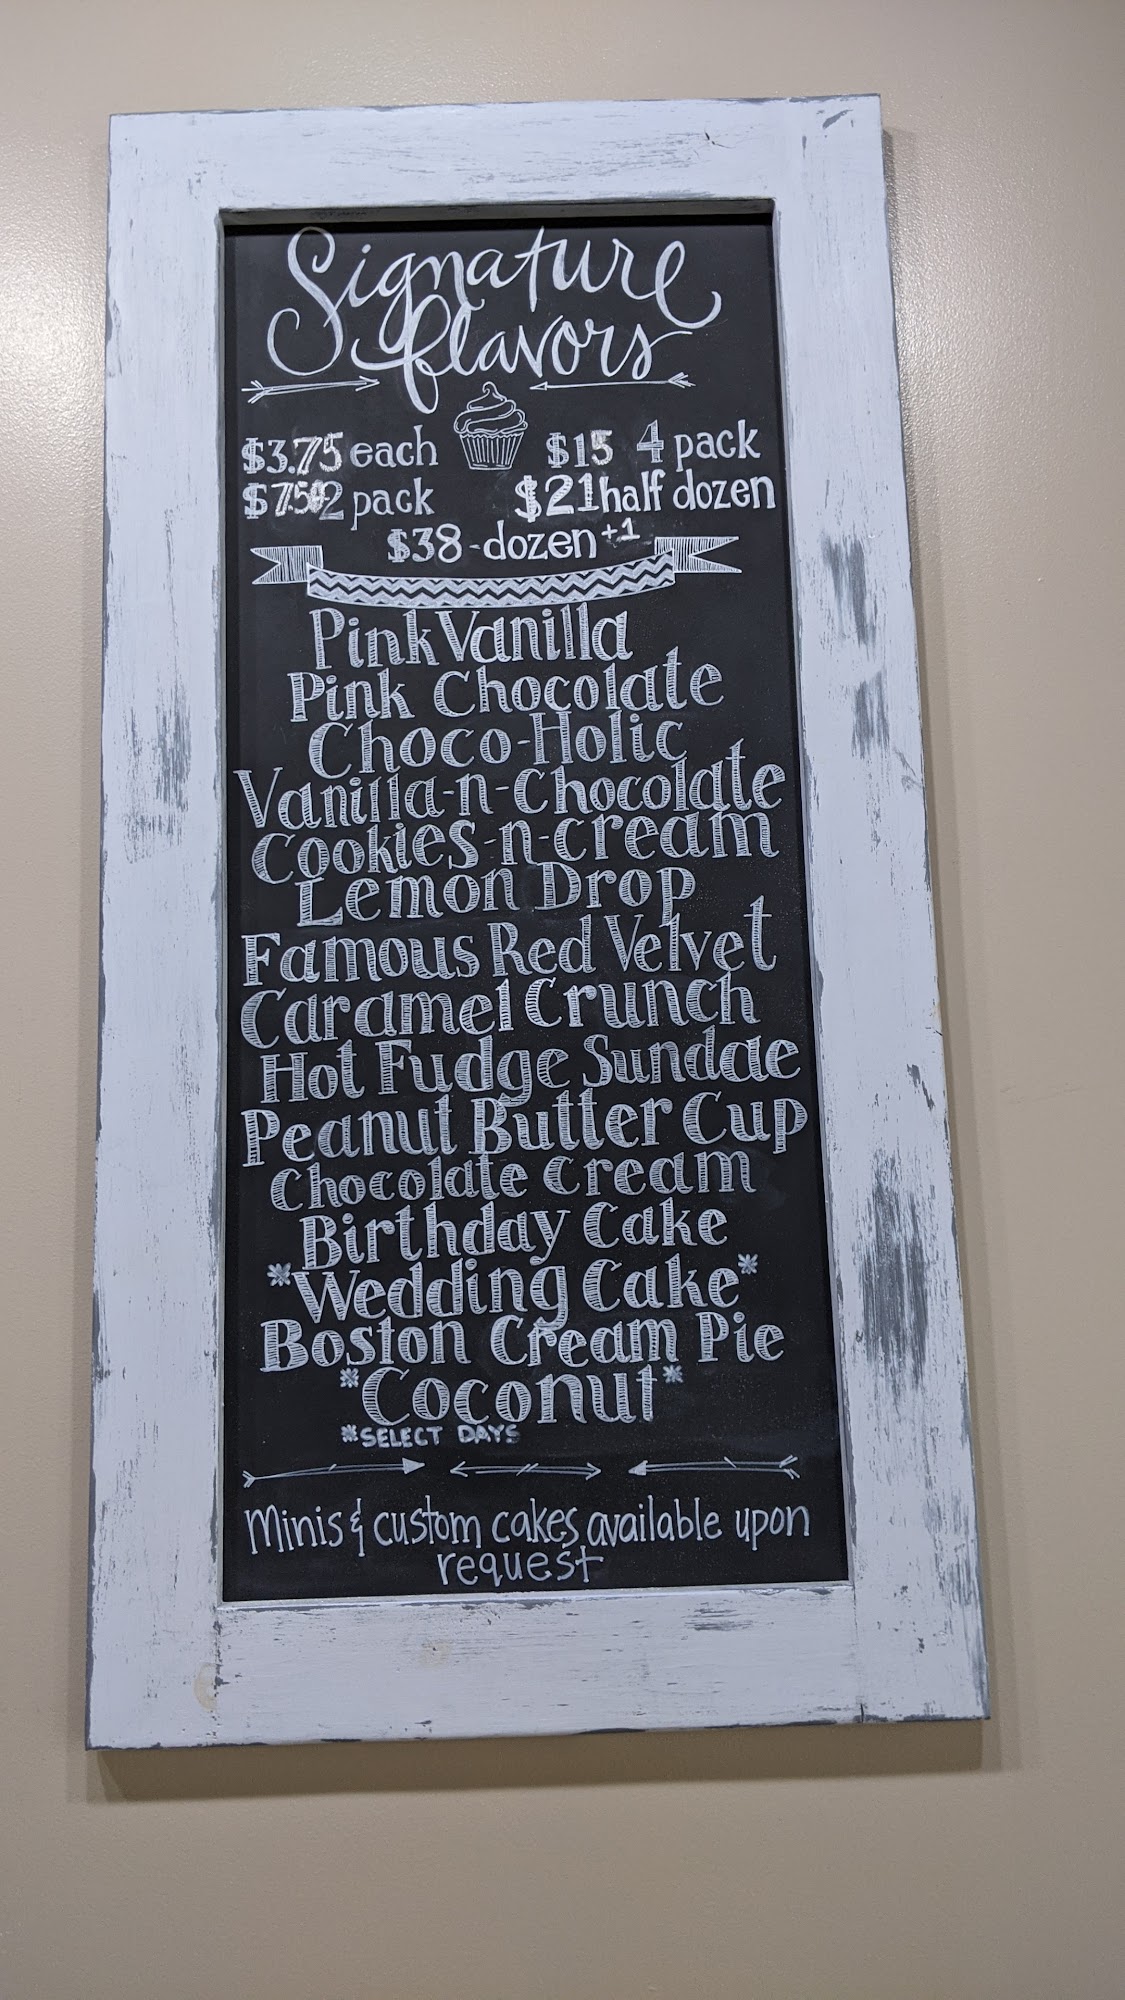 Signature
flavors
$3.75 each $15 4 pack
$7.50 2 pack $21 half dozen
$38-dozen +1
Pink Vanilla
Pink Chocolate
Choco-Holic
Vanilla-n-Chocolate
Cookies-n-cream
Lemon Drop
Famous Red Velvet
Caramel Crunch
Hot Fudge Sundae
Peanut Butter Cup
Chocolate Cream
Birthday Cake
*Wedding Cake*
Boston Cream Pie
*Coconut*
*SELECT DAYS
Minis & custom cakes available upon
request